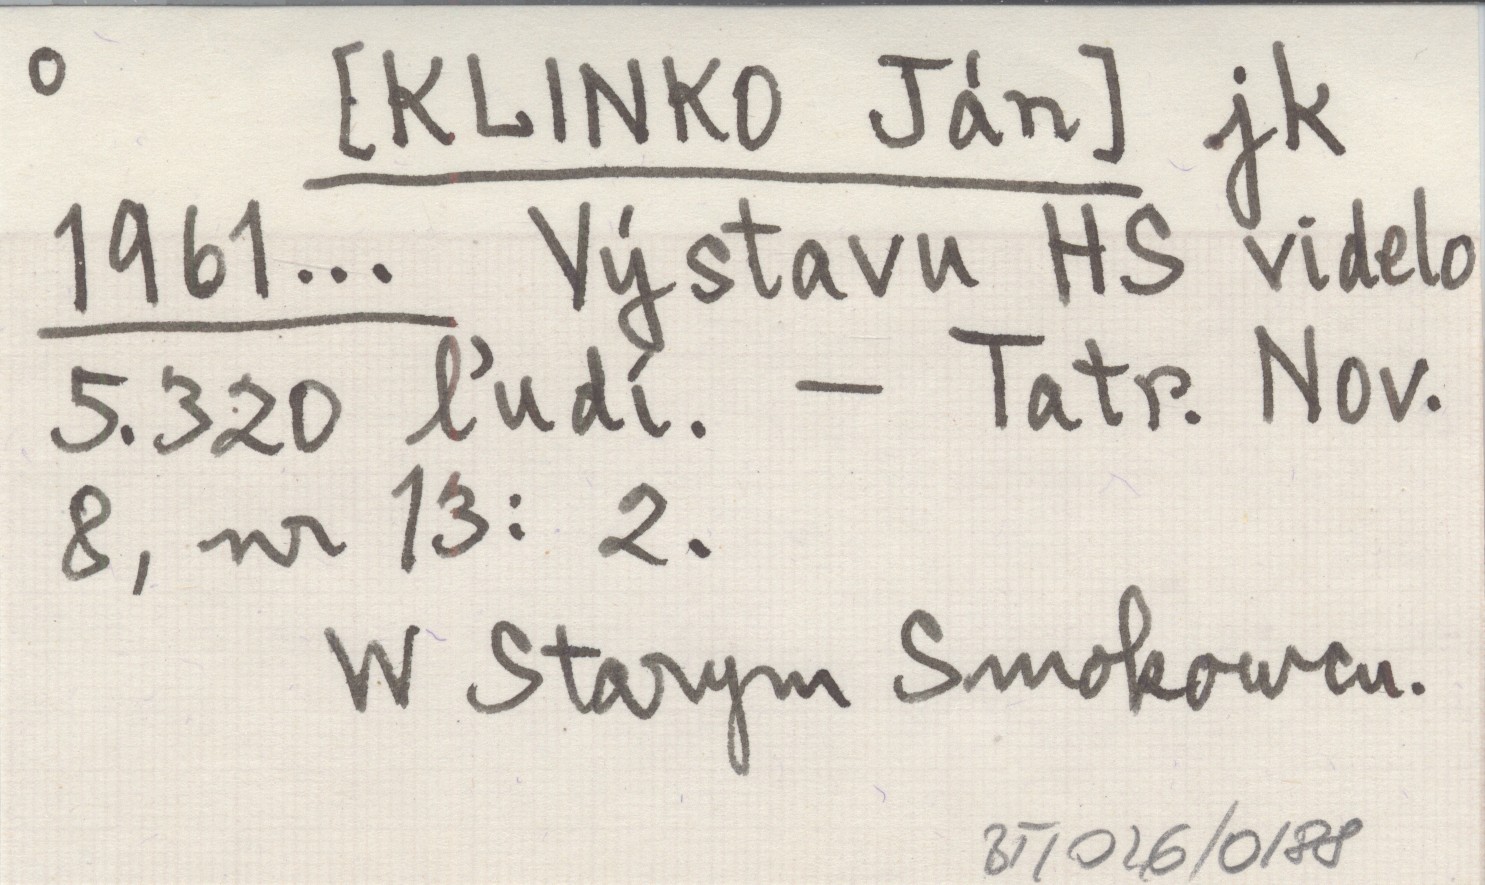 o [KLINKO Ján] jk
1961... Výstavu HS videlo
5.320 ľudí. — Tatr. Nov.
8, nr 13: 2.
W Starym Smokowcu.
BT/026/0188